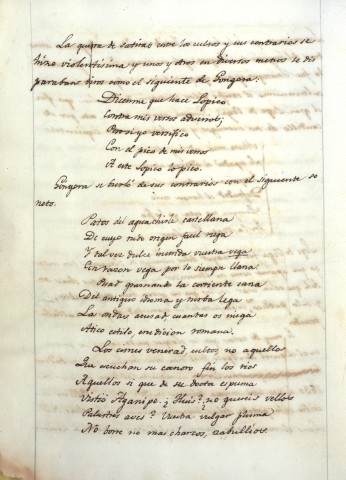 La guerra de sátiras entre los cultos y sus contrarios se
hizo violentísima y unos y otros en diversos metros se dis
paraban tiros como el siguiente de Gongora:
Dícenme que hace Lopico
Contra mis versos adversos;
Pero si yo versifico
Con el pico de mis versos
A este Lopico lo pico.
Góngora se burló de sus contrarios con el siguiente so
neto.
Patos del aguachirle castellana
De cuyo rudo origen facil riega
Y tal vez dulce inunda vuestra vega
Con razon vega por lo siempre llana.
Pisad graznando la corriente cana
Del antiguo idioma y turba lega
Las ondas acusad, cuantas os niega
Atico estilo, erudicion romana.
Los cisnes venerad cultos, no aquellos
Que escuchan su canoro fin los rios
Aquellos si que de su docta espuma
Vistió Aganipe. ¿Huis? ¿no quereis vellos
Palustres aves? Vuestra vulgar pluma
No borre no mas charcos, zabullios.